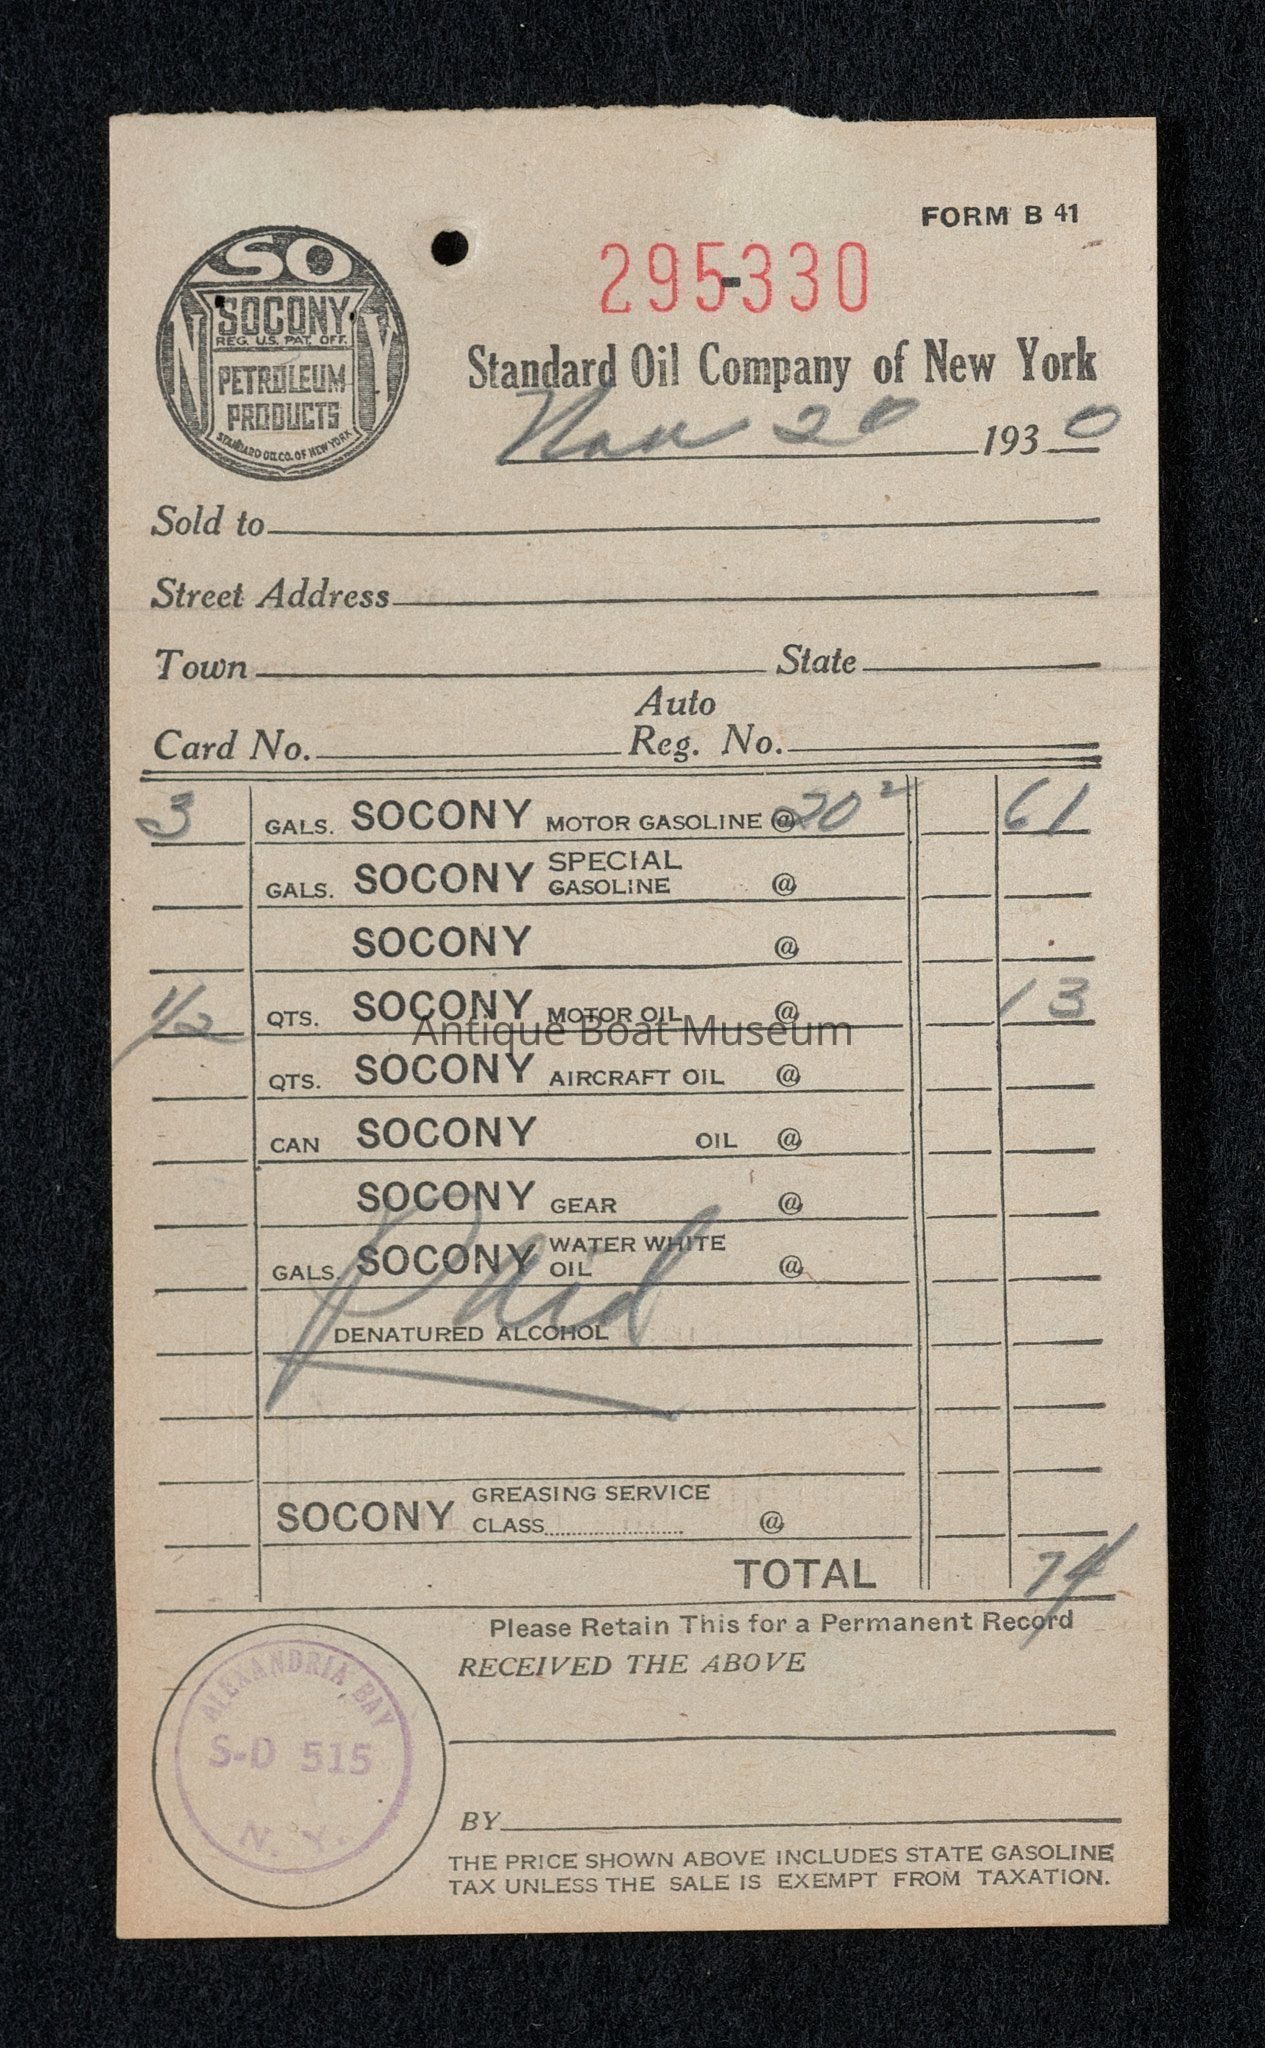 FORM B 41
SO
SOCONY
REG. U.S. PAT. OFF.
N Y
PETROLEUM
PRODUCTS
STANDARD OIL CO. OF NEW YORK
295-330
Standard Oil Company of New York
Nov 20 1930
Sold to
Street Address
Town State
Auto
Card No. Reg. No.
3 GALS. SOCONY MOTOR GASOLINE @ 20² 61
GALS. SOCONY SPECIAL GASOLINE @
SOCONY @
1/2 QTS. SOCONY MOTOR OIL @ 13
Antique Boat Museum
QTS. SOCONY AIRCRAFT OIL @
CAN SOCONY OIL @
SOCONY GEAR @
GALS. SOCONY WATER WHITE OIL @
Paid
DENATURED ALCOHOL
SOCONY GREASING SERVICE
CLASS @
TOTAL 74
Please Retain This for a Permanent Record
RECEIVED THE ABOVE
ALEXANDRIA BAY
S-D 515
N. Y.
BY
THE PRICE SHOWN ABOVE INCLUDES STATE GASOLINE
TAX UNLESS THE SALE IS EXEMPT FROM TAXATION.